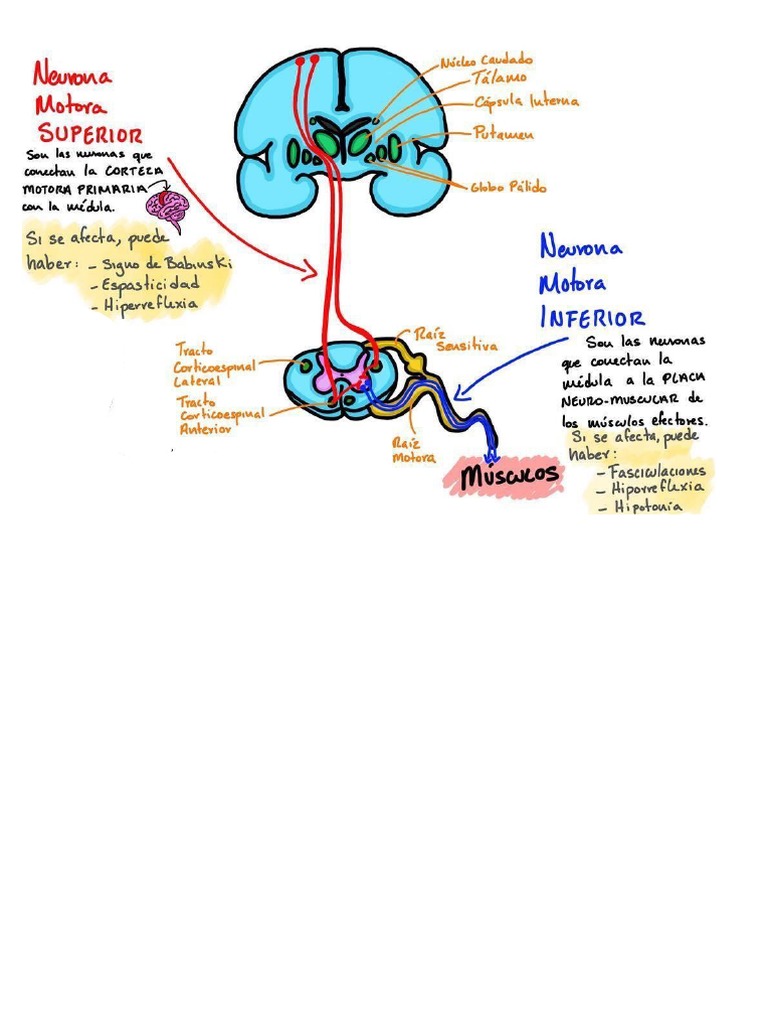 Neurona
Motora
SUPERIOR
Son las neuronas que
conectan la CORTEZA
MOTORA PRIMARIA
con la médula.
Si se afecta, puede
haber: - Signo de Babinski
- Espasticidad
- Hiperreflexia
Núcleo Caudado
Tálamo
Cápsula Interna
Putamen
Globo Pálido
Neurona
Motora
INFERIOR
Son las neuronas
que conectan la
médula a la PLACA
NEURO-MUSCULAR de
los músculos efectores.
Si se afecta, puede
haber:
- Fasciculaciones
- Hiporreflexia
- Hipotonía
Raíz
Sensitiva
Tracto
Corticoespinal
Lateral
Tracto
Corticoespinal
Anterior
Raíz
Motora
MÚSCULOS